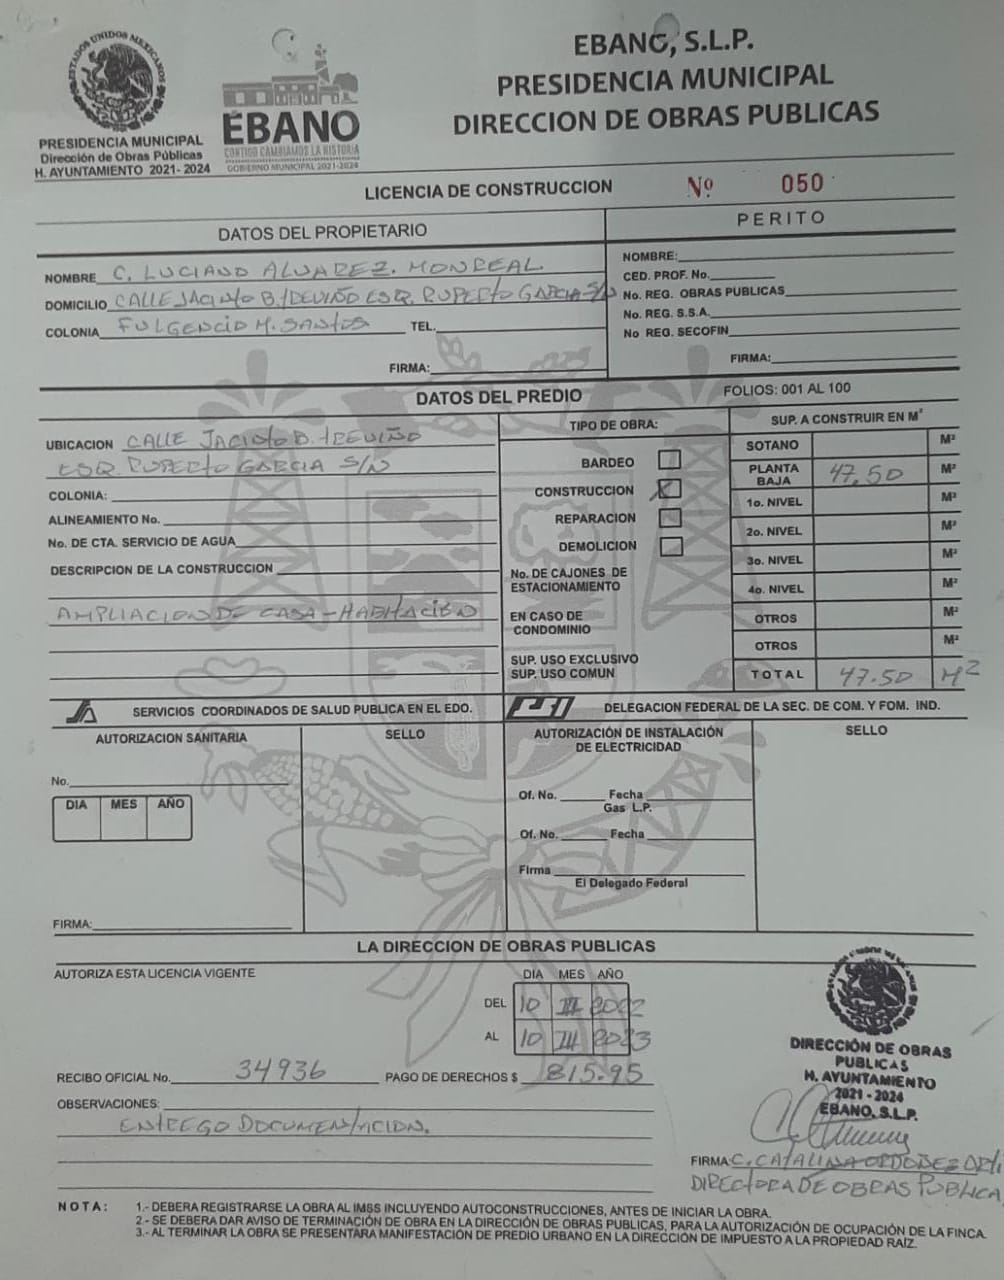 ESTADOS UNIDOS MEXICANOS
PRESIDENCIA MUNICIPAL
Dirección de Obras Públicas
H. AYUNTAMIENTO 2021-2024
ÉBANO
CONTIGO CAMBIAMOS LA HISTORIA
GOBIERNO MUNICIPAL 2021-2024
EBANO, S.L.P.
PRESIDENCIA MUNICIPAL
DIRECCION DE OBRAS PUBLICAS
LICENCIA DE CONSTRUCCION Nº 050
DATOS DEL PROPIETARIO
NOMBRE C. LUCIANO ALVAREZ. MONREAL
DOMICILIO CALLE JACINTO B. TREVIÑO ESQ. RUPERTO GARCIA S/N
COLONIA FULGENCIO M. SANTOS TEL.
FIRMA:
PERITO
NOMBRE:
CED. PROF. No.
No. REG. OBRAS PUBLICAS
No. REG. S.S.A.
No REG. SECOFIN
FIRMA:
DATOS DEL PREDIO
FOLIOS: 001 AL 100
UBICACION CALLE JACINTO B. TREVIÑO
ESQ. RUPERTO GARCIA S/N
COLONIA:
ALINEAMIENTO No.
No. DE CTA. SERVICIO DE AGUA
DESCRIPCION DE LA CONSTRUCCION
AMPLIACION DE CASA-HABITACIÓN
TIPO DE OBRA:
BARDEO
CONSTRUCCION X
REPARACION
DEMOLICION
No. DE CAJONES DE
ESTACIONAMIENTO
EN CASO DE
CONDOMINIO
SUP. USO EXCLUSIVO
SUP. USO COMUN
SUP. A CONSTRUIR EN M²
SOTANO M²
PLANTA
BAJA 47.50 M²
1o. NIVEL M²
2o. NIVEL M²
3o. NIVEL M²
4o. NIVEL M²
OTROS M²
OTROS M²
TOTAL 47.50 M2
SERVICIOS COORDINADOS DE SALUD PUBLICA EN EL EDO.
AUTORIZACION SANITARIA
SELLO
No.
DIA MES AÑO
FIRMA:
DELEGACION FEDERAL DE LA SEC. DE COM. Y FOM. IND.
AUTORIZACIÓN DE INSTALACIÓN
DE ELECTRICIDAD
SELLO
Of. No. Fecha
Gas L.P.
Of. No. Fecha
Firma
El Delegado Federal
LA DIRECCION DE OBRAS PUBLICAS
AUTORIZA ESTA LICENCIA VIGENTE
DIA MES AÑO
DEL 10 III 2022
AL 10 III 2023
RECIBO OFICIAL No. 34936 PAGO DE DERECHOS $ 815.95
OBSERVACIONES:
ENTREGO DOCUMENTACION.
DIRECCIÓN DE OBRAS
PUBLICAS
H. AYUNTAMIENTO
2021 - 2024
EBANO, S.L.P.
FIRMA: C. CATALINA ORDOÑEZ
DIRECTORA DE OBRAS PUBLICA
NOTA: 1.- DEBERA REGISTRARSE LA OBRA AL IMSS INCLUYENDO AUTOCONSTRUCCIONES, ANTES DE INICIAR LA OBRA.
2.- SE DEBERA DAR AVISO DE TERMINACIÓN DE OBRA EN LA DIRECCIÓN DE OBRAS PUBLICAS, PARA LA AUTORIZACIÓN DE OCUPACIÓN DE LA FINCA.
3.- AL TERMINAR LA OBRA SE PRESENTARA MANIFESTACIÓN DE PREDIO URBANO EN LA DIRECCIÓN DE IMPUESTO A LA PROPIEDAD RAÍZ.